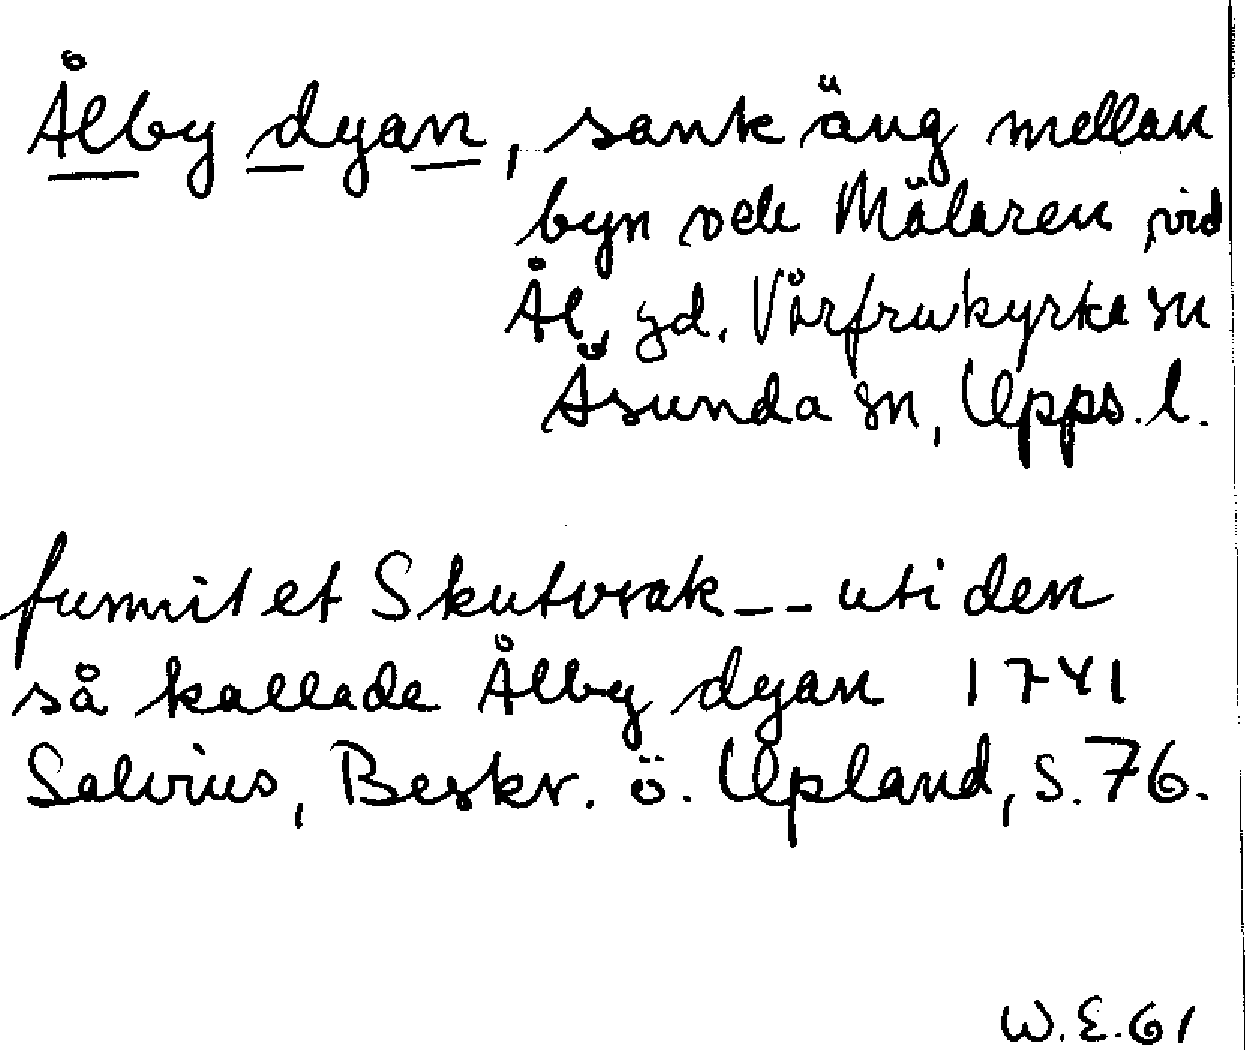 Ålby dyan, sank äng mellan
byn och Mälaren, vid
Ål, gd. Vårfrukyrka sn
Åsunda sn, Upps. l.
funnit et Skutvrak -- uti den
så kallade Ålby dyan 1741
Salvius, Beskr. ö. Upland, S. 76.
W.E.61